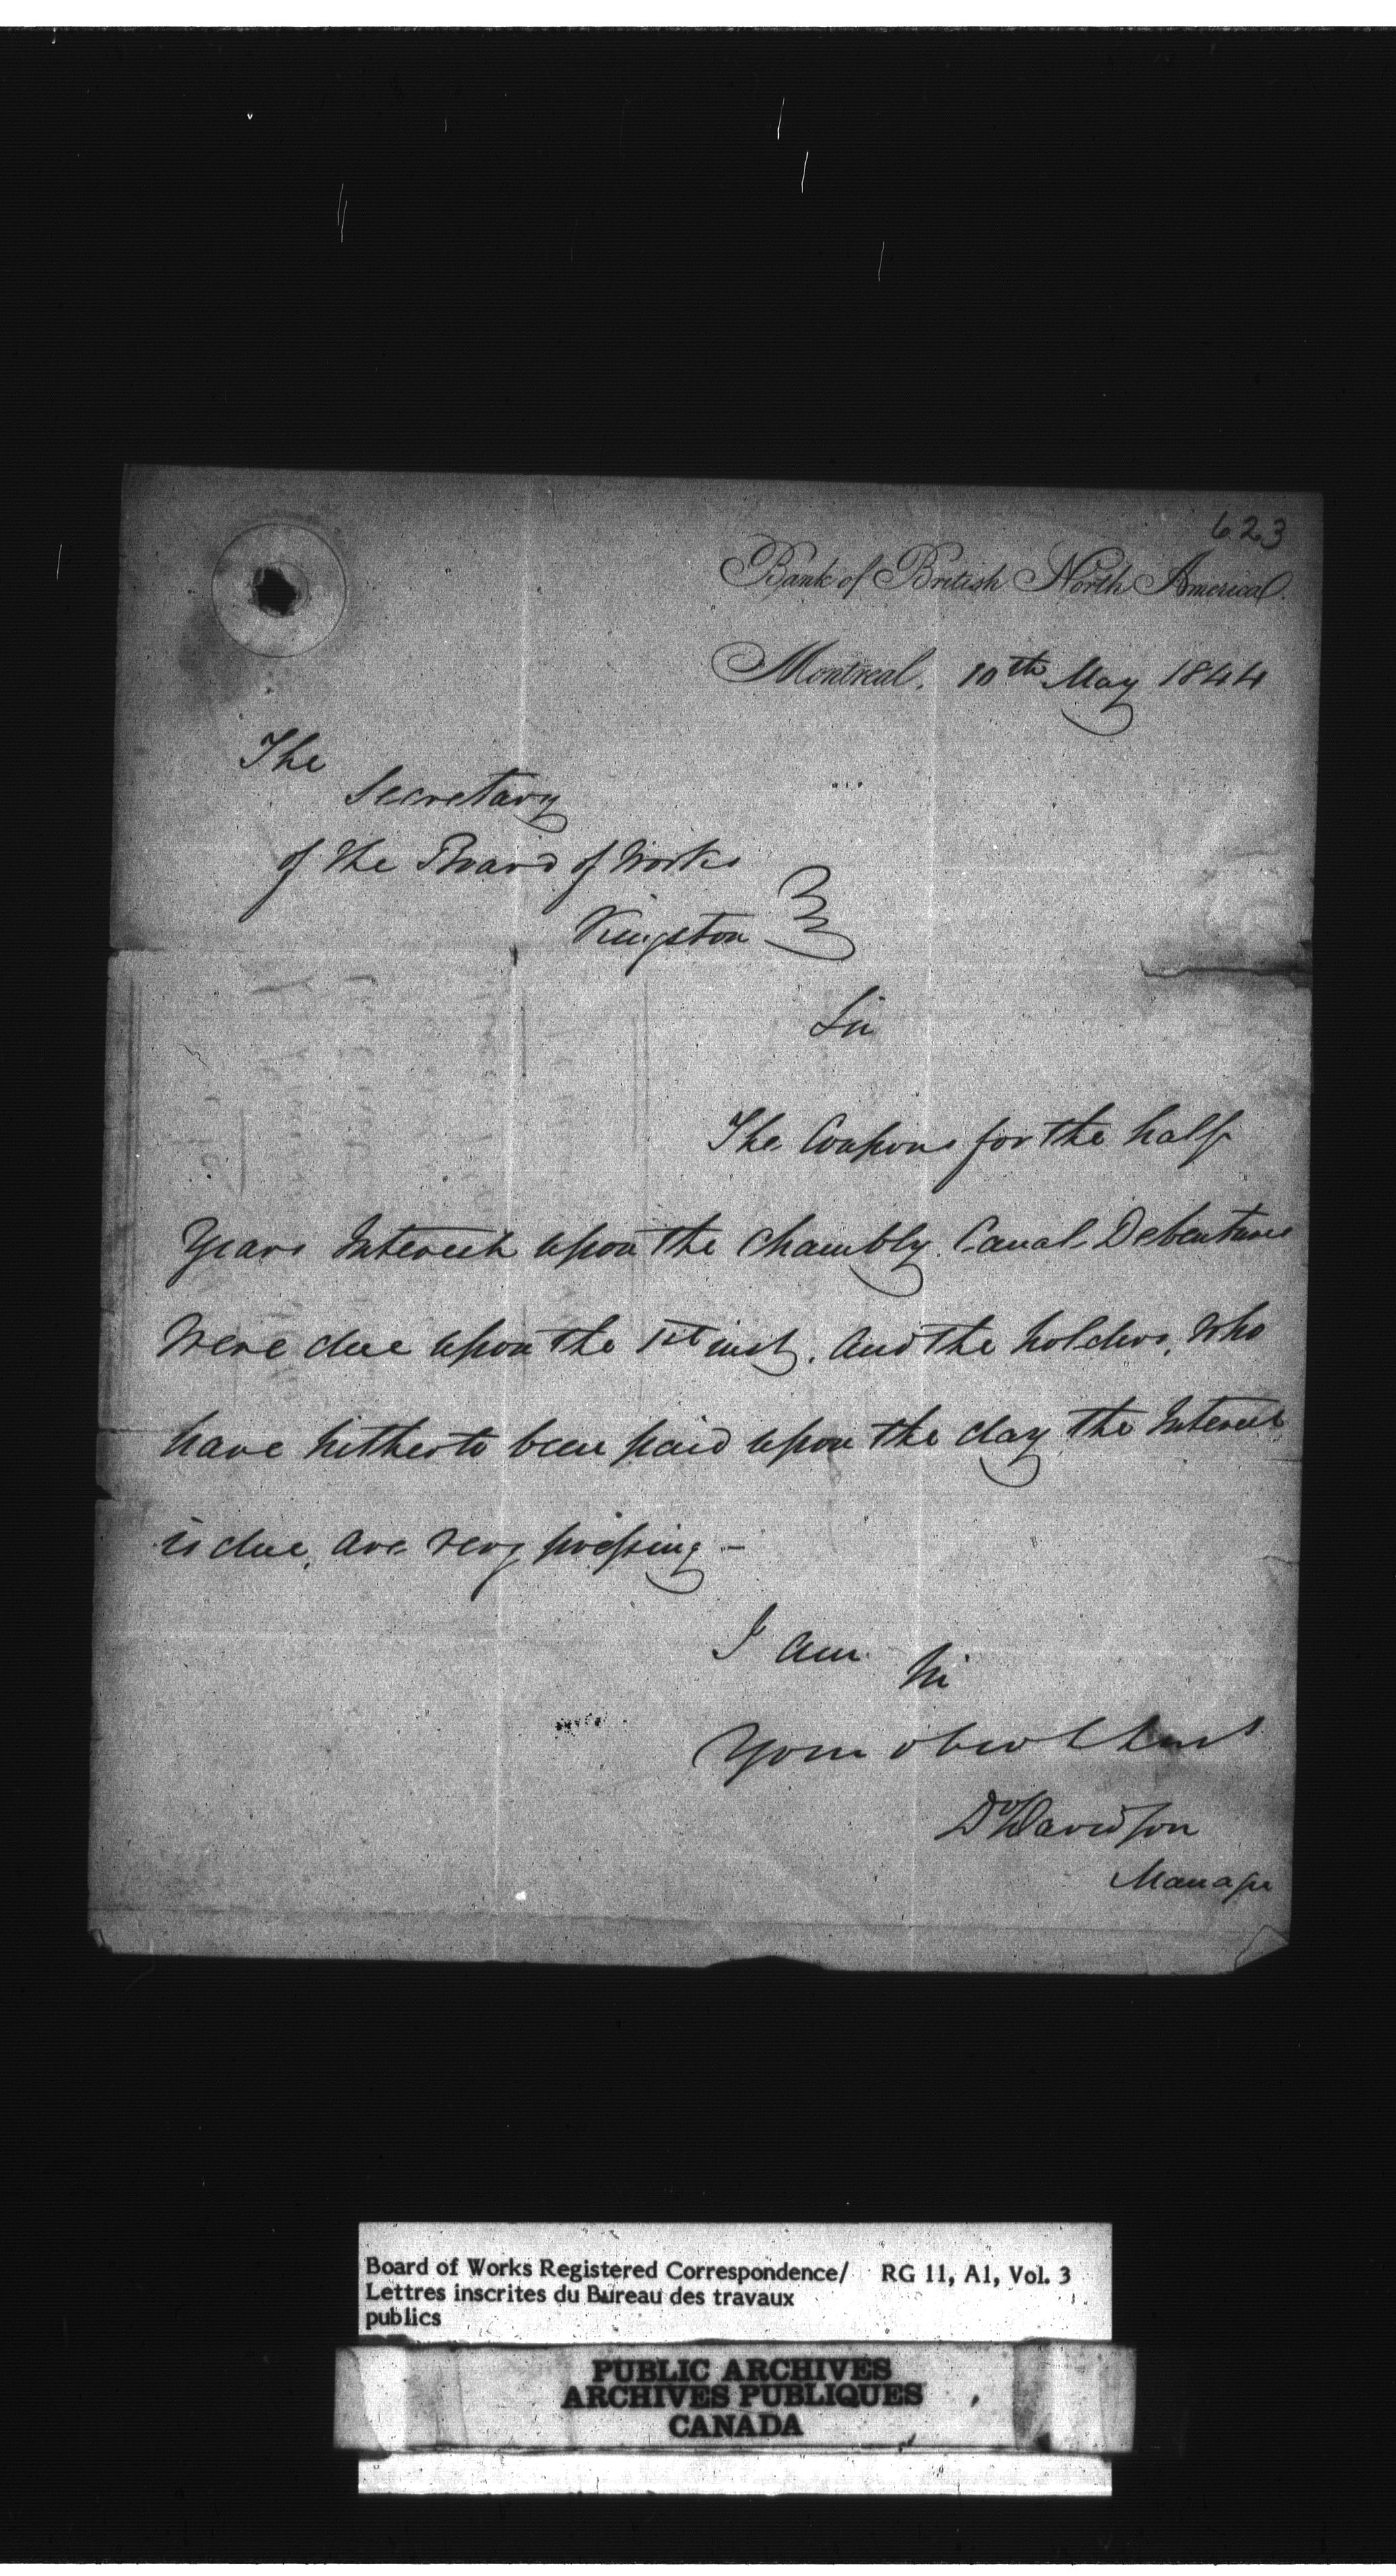 623
Bank of British North America.
Montreal. 10th May 1844
The
Secretary
of the Board of Works
Kingston
Sir
The Coupons for the half
Years Interest upon the Chambly Canal Debentures
Were due upon the 1st inst. and the holders, who
have hitherto been paid upon the day the Interest
is due, are very pressing –
I am Sir
Your obedt Servt
D Davidson
Manager
Board of Works Registered Correspondence/ RG 11, A1, Vol. 3
Lettres inscrites du Bureau des travaux
publics
PUBLIC ARCHIVES
ARCHIVES PUBLIQUES
CANADA